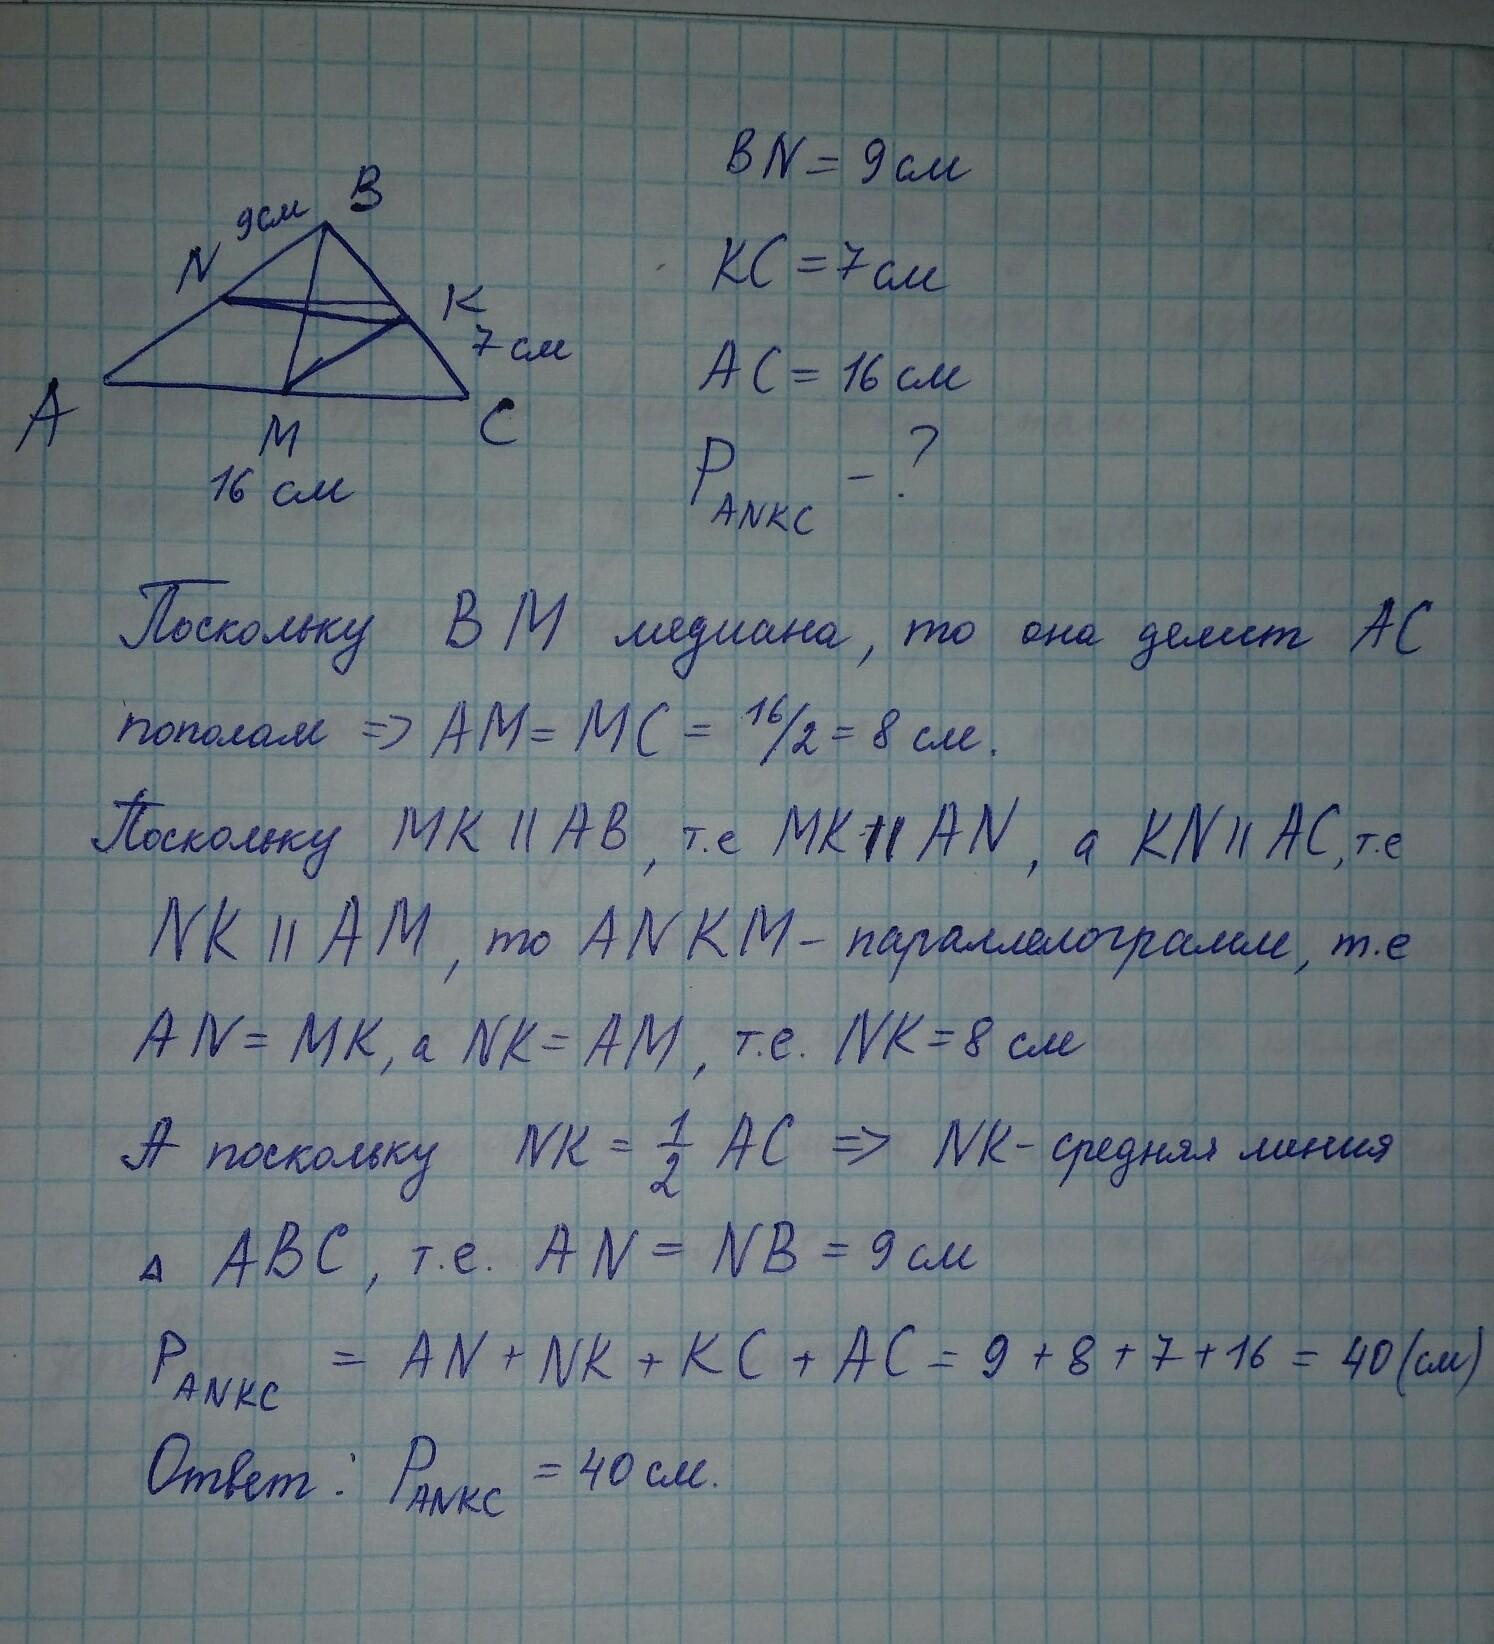 BN = 9 см
B
9см
N
KC = 7 см
K
7 см
AC = 16 см
A
M
C
16 см
P ANKC - ?
Поскольку BM медиана, то она делит AC
пополам => AM = MC = 16/2 = 8 см.
Поскольку MK || AB, т.е MK || AN, а KN || AC, т.е
NK || AM, то ANKM - параллелограмм, т.е
AN = MK, а NK = AM, т.е. NK = 8 см
А поскольку NK = 1/2 AC => NK - средняя линия
△ ABC, т.е. AN = NB = 9 см
P ANKC = AN + NK + KC + AC = 9 + 8 + 7 + 16 = 40 (см)
Ответ: P ANKC = 40 см.